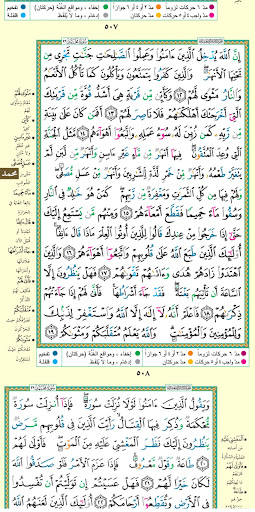 مدّ ٦ حركات لزوماً مدّ ٢ أو ٤ أو ٦ جوازاً إخفاء، ومواقع الغُنَّة (حركتان) تفخيم
مدّ واجب ٤ أو ٥ حركات مدّ حركتان إدغام، وما لا يُلفَظ قلقلة
٥٠٧
إِنَّ ٱللَّهَ يُدۡخِلُ ٱلَّذِينَ ءَامَنُواْ وَعَمِلُواْ ٱلصَّٰلِحَٰتِ جَنَّٰتٖ تَجۡرِي مِن
تَحۡتِهَا ٱلۡأَنۡهَٰرُۖ وَٱلَّذِينَ كَفَرُواْ يَتَمَتَّعُونَ وَيَأۡكُلُونَ كَمَا تَأۡكُلُ ٱلۡأَنۡعَٰمُ
وَٱلنَّارُ مَثۡوٗى لَّهُمۡ ١٢ وَكَأَيِّن مِّن قَرۡيَةٍ هِيَ أَشَدُّ قُوَّةٗ مِّن قَرۡيَتِكَ
ٱلَّتِيٓ أَخۡرَجَتۡكَ أَهۡلَكۡنَٰهُمۡ فَلَا نَاصِرَ لَهُمۡ ١٣ أَفَمَن كَانَ عَلَىٰ بَيِّنَةٖ
مِّن رَّبِّهِۦ كَمَن زُيِّنَ لَهُۥ سُوٓءُ عَمَلِهِۦ وَٱتَّبَعُوٓاْ أَهۡوَآءَهُم ١٤ مَّثَلُ ٱلۡجَنَّةِ
ٱلَّتِي وُعِدَ ٱلۡمُتَّقُونَۖ فِيهَآ أَنۡهَٰرٞ مِّن مَّآءٍ غَيۡرِ ءَاسِنٖ وَأَنۡهَٰرٞ مِّن لَّبَنٖ لَّمۡ
يَتَغَيَّرۡ طَعۡمُهُۥ وَأَنۡهَٰرٞ مِّنۡ خَمۡرٖ لَّذَّةٖ لِّلشَّٰرِبِينَ وَأَنۡهَٰرٞ مِّنۡ عَسَلٖ مُّصَفّٗىۖ
وَلَهُمۡ فِيهَا مِن كُلِّ ٱلثَّمَرَٰتِ وَمَغۡفِرَةٞ مِّن رَّبِّهِمۡۖ كَمَنۡ هُوَ خَٰلِدٞ فِي ٱلنَّارِ
وَسُقُواْ مَآءً حَمِيمٗا فَقَطَّعَ أَمۡعَآءَهُمۡ ١٥ وَمِنۡهُم مَّن يَسۡتَمِعُ إِلَيۡكَ
حَتَّىٰٓ إِذَا خَرَجُواْ مِنۡ عِندِكَ قَالُواْ لِلَّذِينَ أُوتُواْ ٱلۡعِلۡمَ مَاذَا قَالَ ءَانِفًاۚ
أُوْلَٰٓئِكَ ٱلَّذِينَ طَبَعَ ٱللَّهُ عَلَىٰ قُلُوبِهِمۡ وَٱتَّبَعُوٓاْ أَهۡوَآءَهُمۡ ١٦ وَٱلَّذِينَ
ٱهۡتَدَوۡاْ زَادَهُمۡ هُدٗى وَءَاتَىٰهُمۡ تَقۡوَىٰهُمۡ ١٧ فَهَلۡ يَنظُرُونَ إِلَّا
ٱلسَّاعَةَ أَن تَأۡتِيَهُم بَغۡتَةٗۖ فَقَدۡ جَآءَ أَشۡرَاطُهَاۚ فَأَنَّىٰ لَهُمۡ إِذَا جَآءَتۡهُمۡ
ذِكۡرَىٰهُمۡ ١٨ فَٱعۡلَمۡ أَنَّهُۥ لَآ إِلَٰهَ إِلَّا ٱللَّهُ وَٱسۡتَغۡفِرۡ لِذَنۢبِكَ
وَلِلۡمُؤۡمِنِينَ وَٱلۡمُؤۡمِنَٰتِۗ وَٱللَّهُ يَعۡلَمُ مُتَقَلَّبَكُمۡ وَمَثۡوَىٰكُمۡ ١٩
محمد
مدّ ٦ حركات لزوماً مدّ ٢ أو ٤ أو ٦ جوازاً إخفاء، ومواقع الغُنَّة (حركتان) تفخيم
مدّ واجب ٤ أو ٥ حركات مدّ حركتان إدغام، وما لا يُلفَظ قلقلة
٥٠٨
وَيَقُولُ ٱلَّذِينَ ءَامَنُواْ لَوۡلَا نُزِّلَتۡ سُورَةٞۖ فَإِذَآ أُنزِلَتۡ سُورَةٞ
مُّحۡكَمَةٞ وَذُكِرَ فِيهَا ٱلۡقِتَالُ رَأَيۡتَ ٱلَّذِينَ فِي قُلُوبِهِم مَّرَضٞ
يَنظُرُونَ إِلَيۡكَ نَظَرَ ٱلۡمَغۡشِيِّ عَلَيۡهِ مِنَ ٱلۡمَوۡتِۖ فَأَوۡلَىٰ لَهُمۡ
٢٠ طَاعَةٞ وَقَوۡلٞ مَّعۡرُوفٞۚ فَإِذَا عَزَمَ ٱلۡأَمۡرُ فَلَوۡ صَدَقُواْ ٱللَّهَ
لَكَانَ خَيۡرٗا لَّهُمۡ ٢١ فَهَلۡ عَسَيۡتُمۡ إِن تَوَلَّيۡتُمۡ أَن تُفۡسِدُواْ
فِي ٱلۡأَرۡضِ وَتُقَطِّعُوٓاْ أَرۡحَامَكُمۡ ٢٢ أُوْلَٰٓئِكَ ٱلَّذِينَ لَعَنَهُمُ ٱللَّهُ